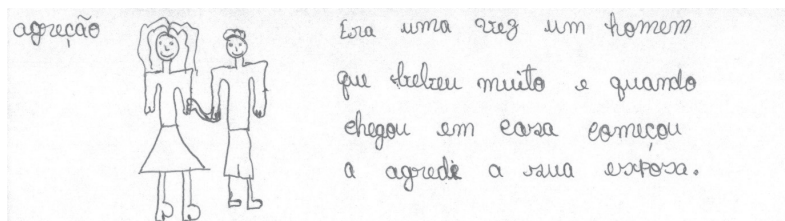 agreção
Era uma vez um homem
que bebeu muito e quando
chegou em casa começou
a agredi a sua esposa.